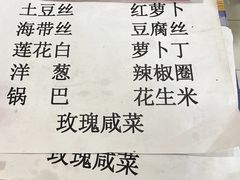 土豆丝 红萝卜
海带丝 豆腐丝
莲花白 萝卜丁
洋 葱 辣椒圈
锅 巴 花生米
玫瑰咸菜
玫瑰咸菜